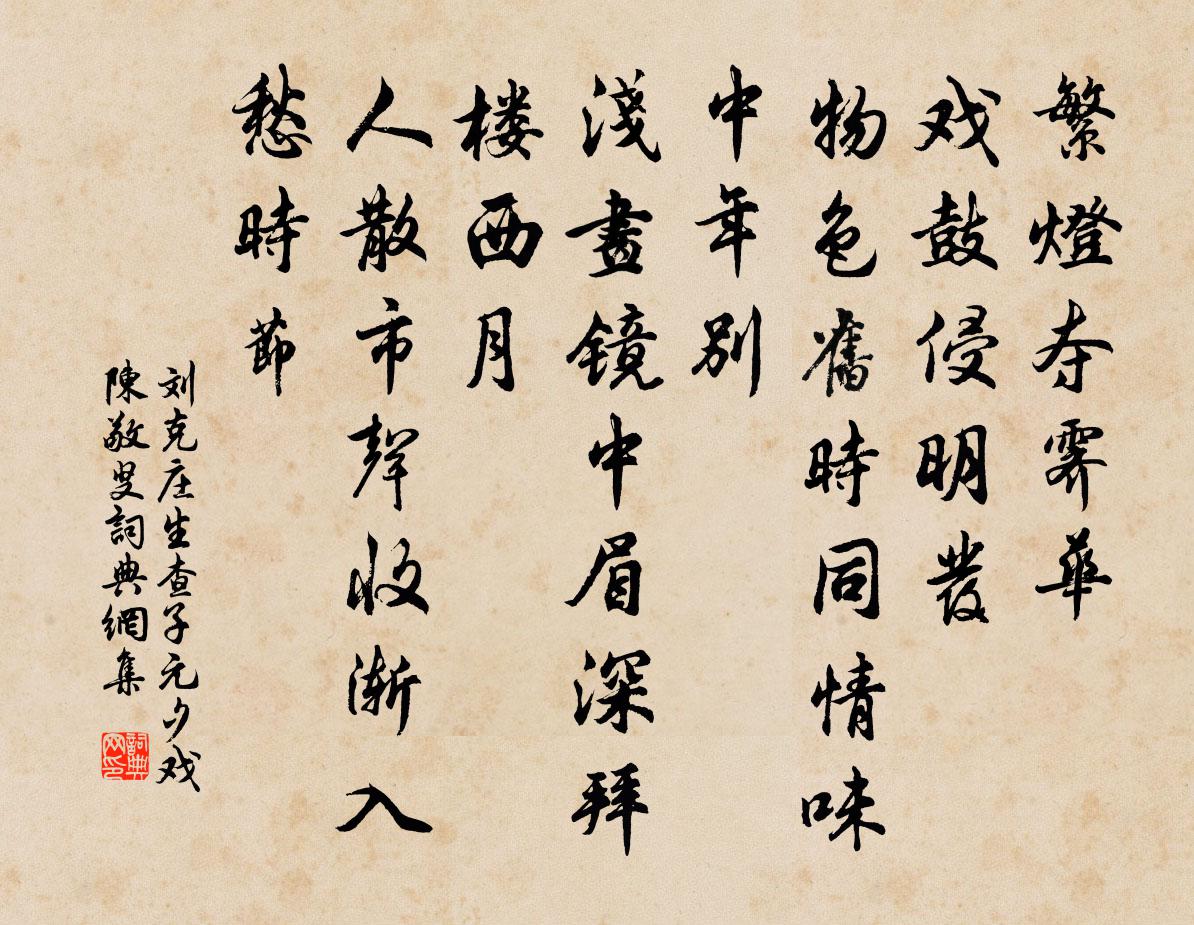 繁燈夺霽華
戏鼓侵明發
物色舊時同情味
中年別
淺畫鏡中眉深拜
楼西月
人散市聲收漸入
愁時節
刘克庄生查子元夕戏
陳敬叟詞典網集
詞典网印